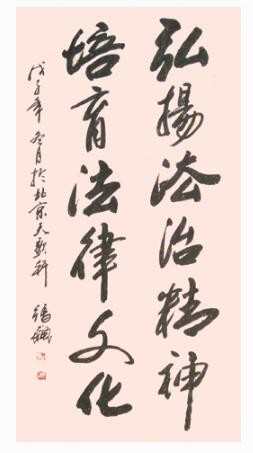 弘揚法治精神
培育法律文化
戊子年冬月於北京天歌軒